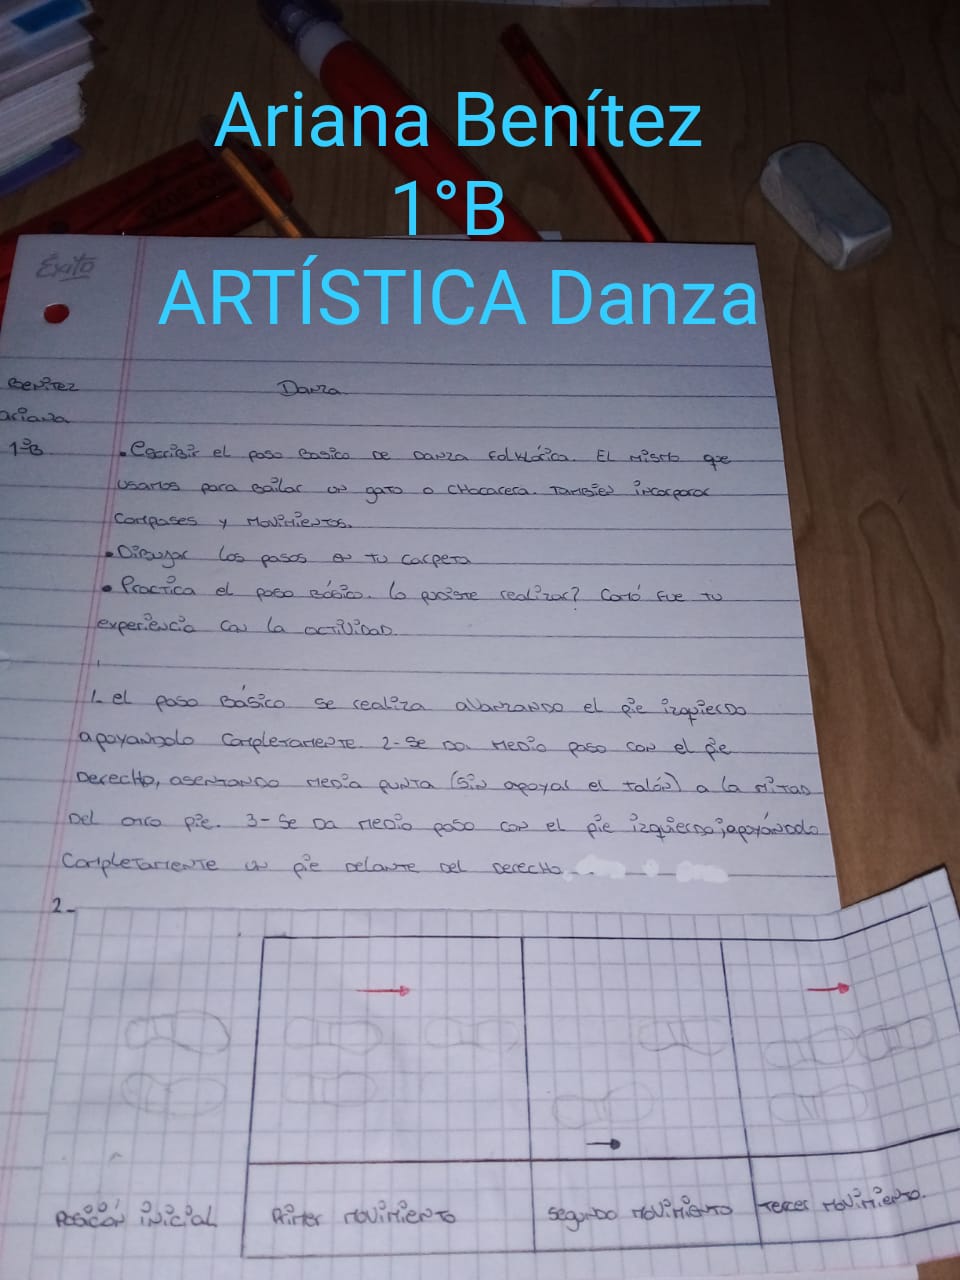 Ariana Benítez
1°B
ARTÍSTICA Danza
Éxito
Benitez
ariana
1°B
Danza
• Escribir el paso Basico de Danza Folklórica. El mismo que
usamos para bailar un gato o chacarera. También incorporar
Compases y Movimientos.
• Dibujar los pasos en tu carpeta
• Practica el paso Básico. Lo pudiste realizar? Comó fue tu
experiencia con la actividad.
1. el paso Básico se realiza avanzando el pie izquierdo
apoyandolo completamente. 2-Se da medio paso con el pie
Derecho, asentando media punta (sin apoyal el talón) a la mitad
Del otro pie. 3-Se da medio paso con el pie izquierdo; apoyándolo
Completamente un pie delante del derecho.
2-
Posición inicial
Primer movimiento
segundo movimiento
Tercer movimiento.